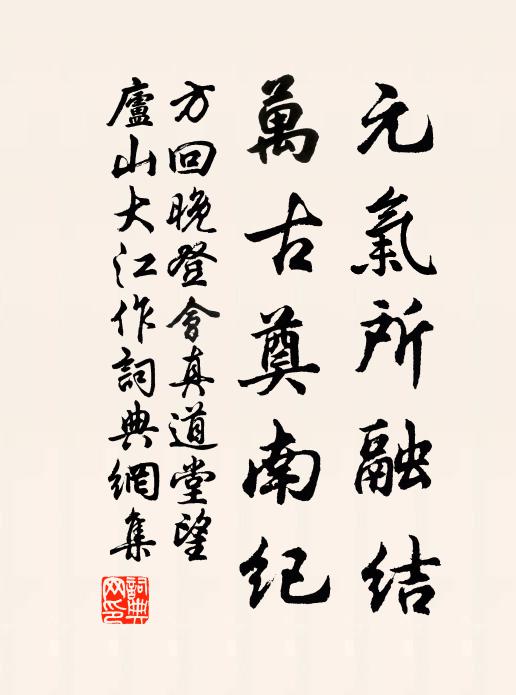 元氣所融結
萬古奠南紀
方回晚登會真道堂望
廬山大江作詞典網集
詞典
網印